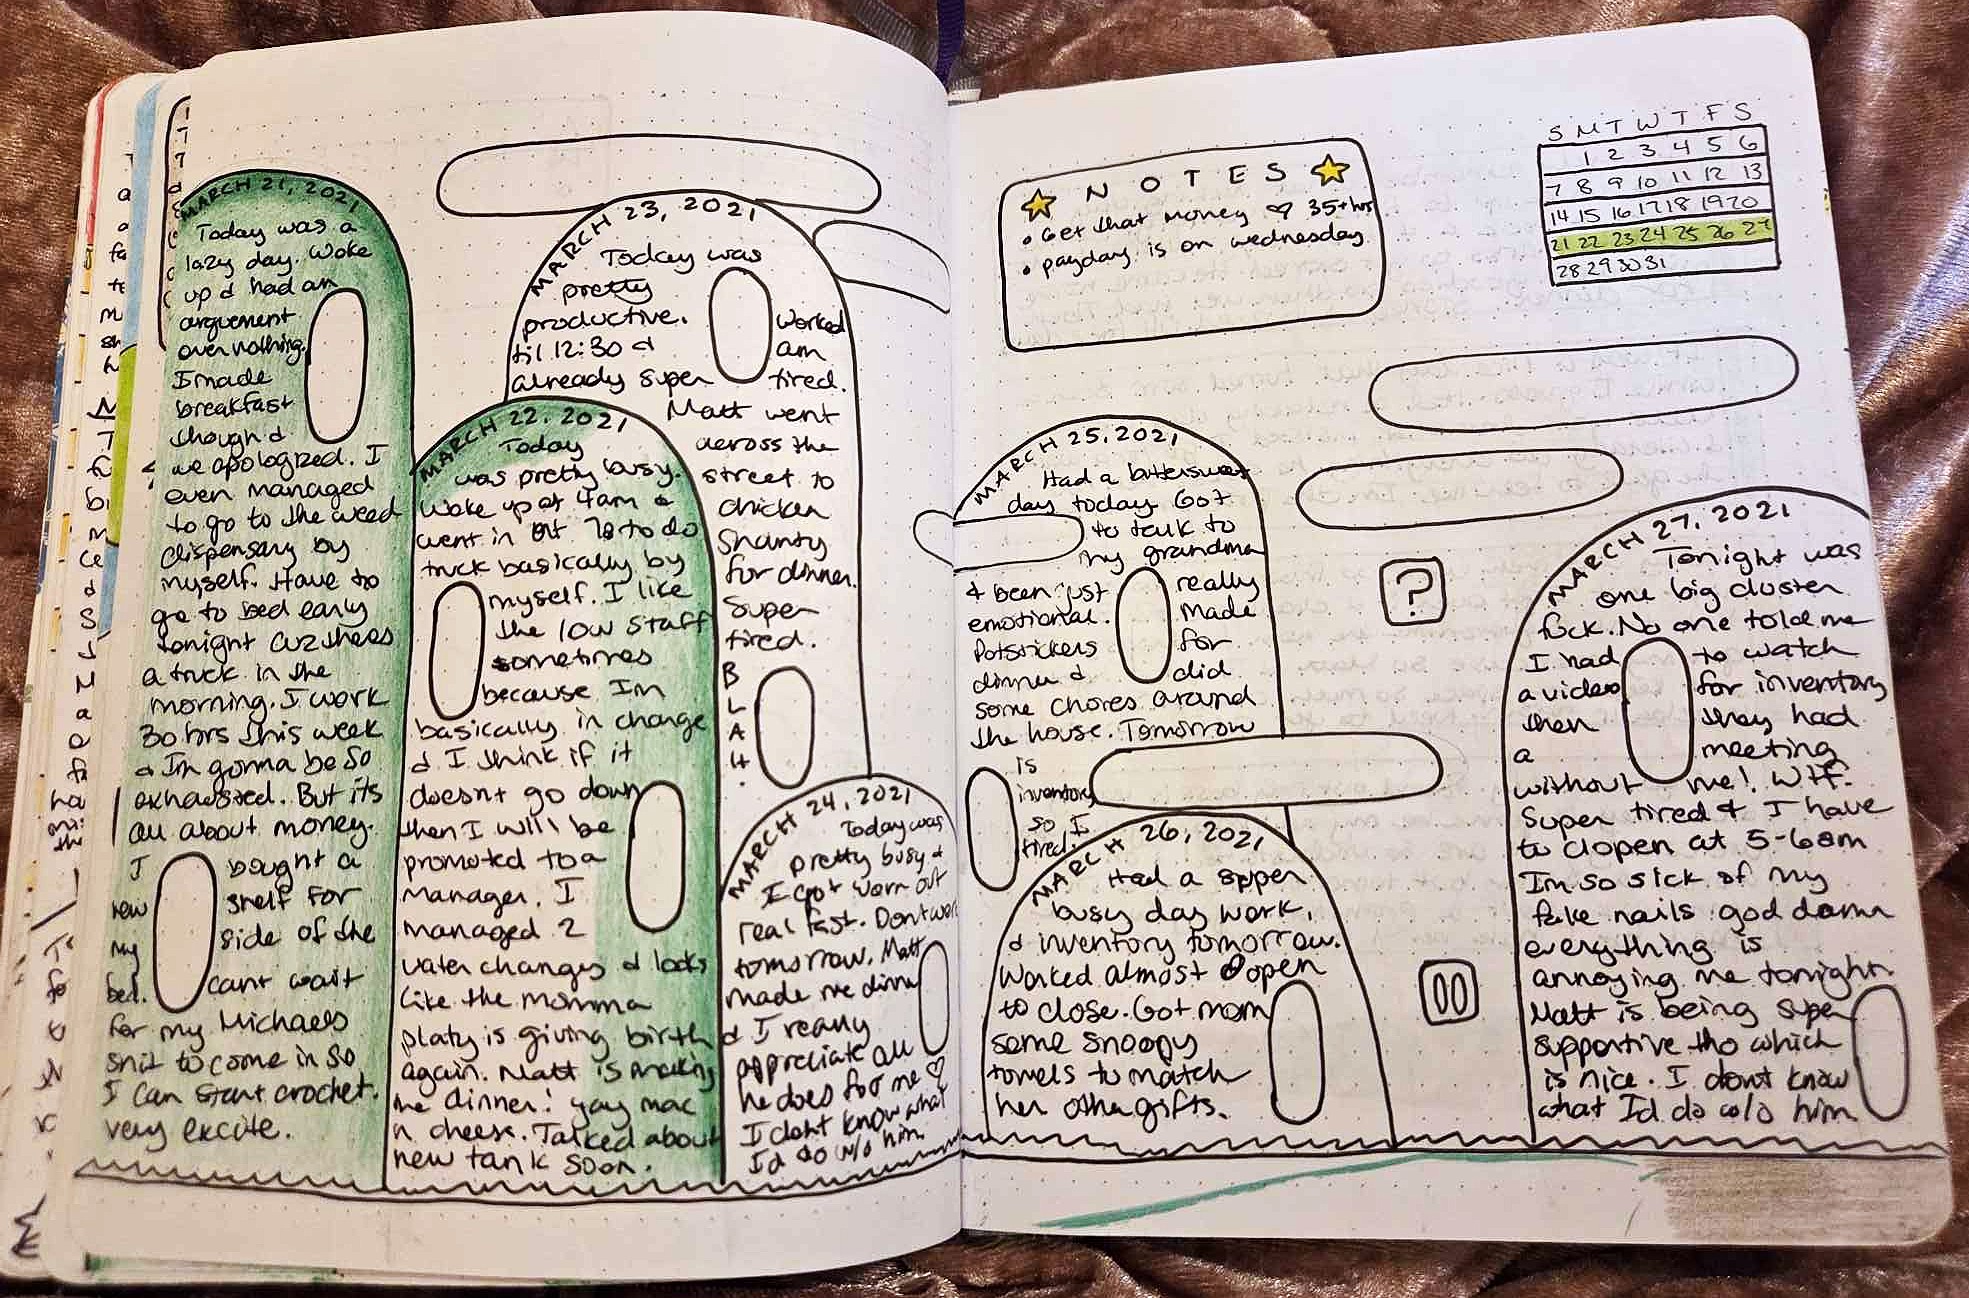 MARCH 21, 2021
Today was a
lazy day. Woke
up & had an
arguement
over nothing.
I made
breakfast
though &
we apologized. I
even managed
to go to the weed
dispensary by
myself. Have to
go to bed early
tonight cuz theres
a truck in the
morning. I work
30 hrs this week
& Im gonna be so
exhausted. But its
all about money.
I bought a
new shelf for
my side of the
bed. cant wait
for my Michaels
shit to come in so
I can start crochet.
very excite.
MARCH 22, 2021
Today
was pretty busy.
Woke up at 4am &
went in at to do
truck basically by
myself. I like
the low staff
sometimes
because Im
basically in charge
& I think if it
doesnt go down
then I will be
promoted to a
manager. I
managed 2
water changes & looks
like the momma
platy is giving birth
again. Matt is making
me dinner! yay mac
n cheese. Talked about
new tank soon.
MARCH 23, 2021
Today was
pretty
productive. Worked
til 12:30 & am
already super tired.
Matt went
across the
street to
chicken
shanty
for dinner.
Super
tired.
B
L
A
H.
MARCH 24, 2021
Today was
pretty busy &
I got worn out
real fast. Dont work
tomorrow. Matt
made me dinner
& I really
appreciate all
he does for me ♡
I dont know what
Id do w/o him
☆ NOTES ☆
• Get that money ♡ 35+ hrs
• payday is on wednesday
S M T W T F S
1 2 3 4 5 6
7 8 9 10 11 12 13
14 15 16 17 18 19 20
21 22 23 24 25 26 27
28 29 30 31
MARCH 25, 2021
Had a bittersweet
day today. Got
to talk to
my grandma
& been just really
emotional. Made
Potstickers for
dinner & did
some chores around
the house. Tomorrow
is
inventory
so I
tired.
MARCH 26, 2021
Had a super
busy day work,
& inventory tomorrow.
Worked almost open
to close. Got mom
some snoopy
towels to match
her other gifts.
?
00
MARCH 27, 2021
Tonight was
one big cluster
fuck. No one told me
I had to watch
a video for inventory
then they had
a meeting
without me! Wtf.
Super tired & I have
to clopen at 5-6am
Im so sick of my
fake nails god damn
everything is
annoying me tonight.
Matt is being super
supportive tho which
is nice. I dont know
what Id do w/o him